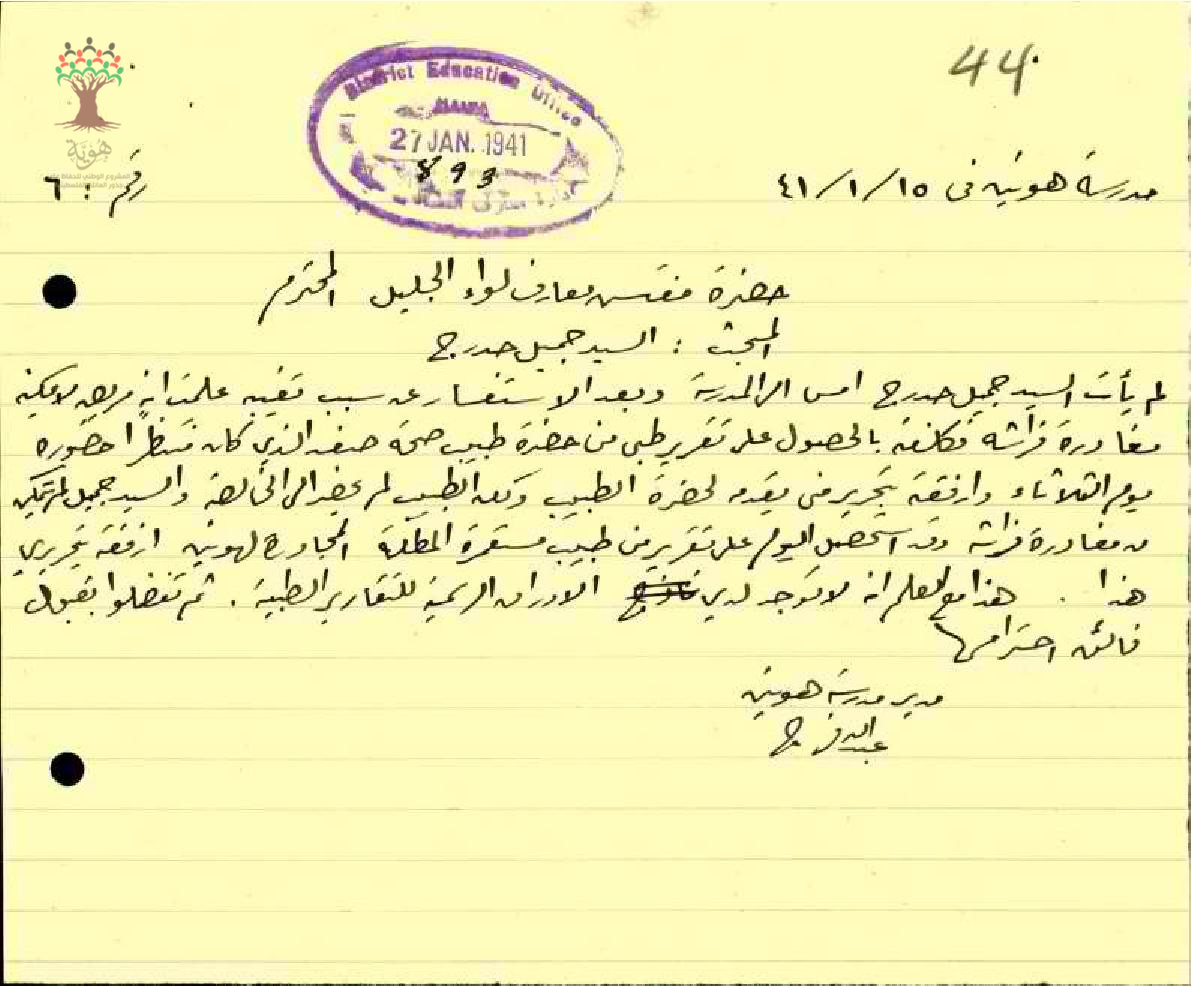 44
District Education Office
27 JAN. 1941
893
هوية
مدرسة هونين في ١٥/١/٤١
رقم : ٦
حضرة مفتش معارف لواء الجليل المحترم
المبحث : السيد جميل حدرج
لم يأت السيد جميل حدرج امس الى المدرسة وبعد الاستفسار عن سبب تغيبه علمت انه مريض لا يمكنه
مغادرة فراشه فكلفته بالحصول على تقرير طبي من حضرة طبيب صحة صفد الذي كان منتظراً حضوره
يوم الثلاثاء وارفقته بتحرير مني يقدمه لحضرة الطبيب ولكن الطبيب لم يحضر الى الخالصة والسيد جميل لم يتمكن
من مغادرة فراشه وقد استحصل اليوم على تقرير من طبيب مستعمرة المطلة المجاورة لهونين ارفقه بتحريري
هذا . هذا مع العلم انه لا توجد لدي الاوراق الرسمية للتقارير الطبية . ثم تفضلوا بقبول
فائق احترامي
مدير مدرسة هونين
عبدالله فرج